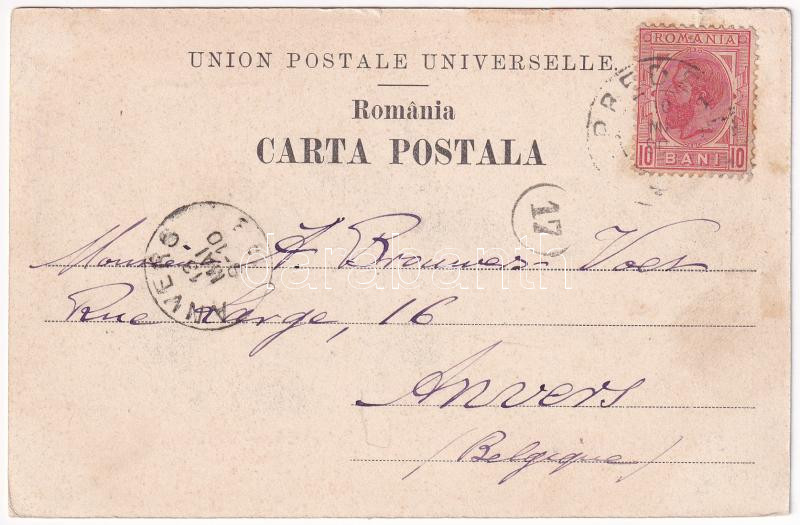 UNION POSTALE UNIVERSELLE
România
CARTA POSTALA
ROMANIA
10 BANI 10
PRED
17
ANVERS
13
MAI
8-10
Monsieur A. Brouwez-Voet
Rue Large, 16
Anvers
(Belgique)
darabanth